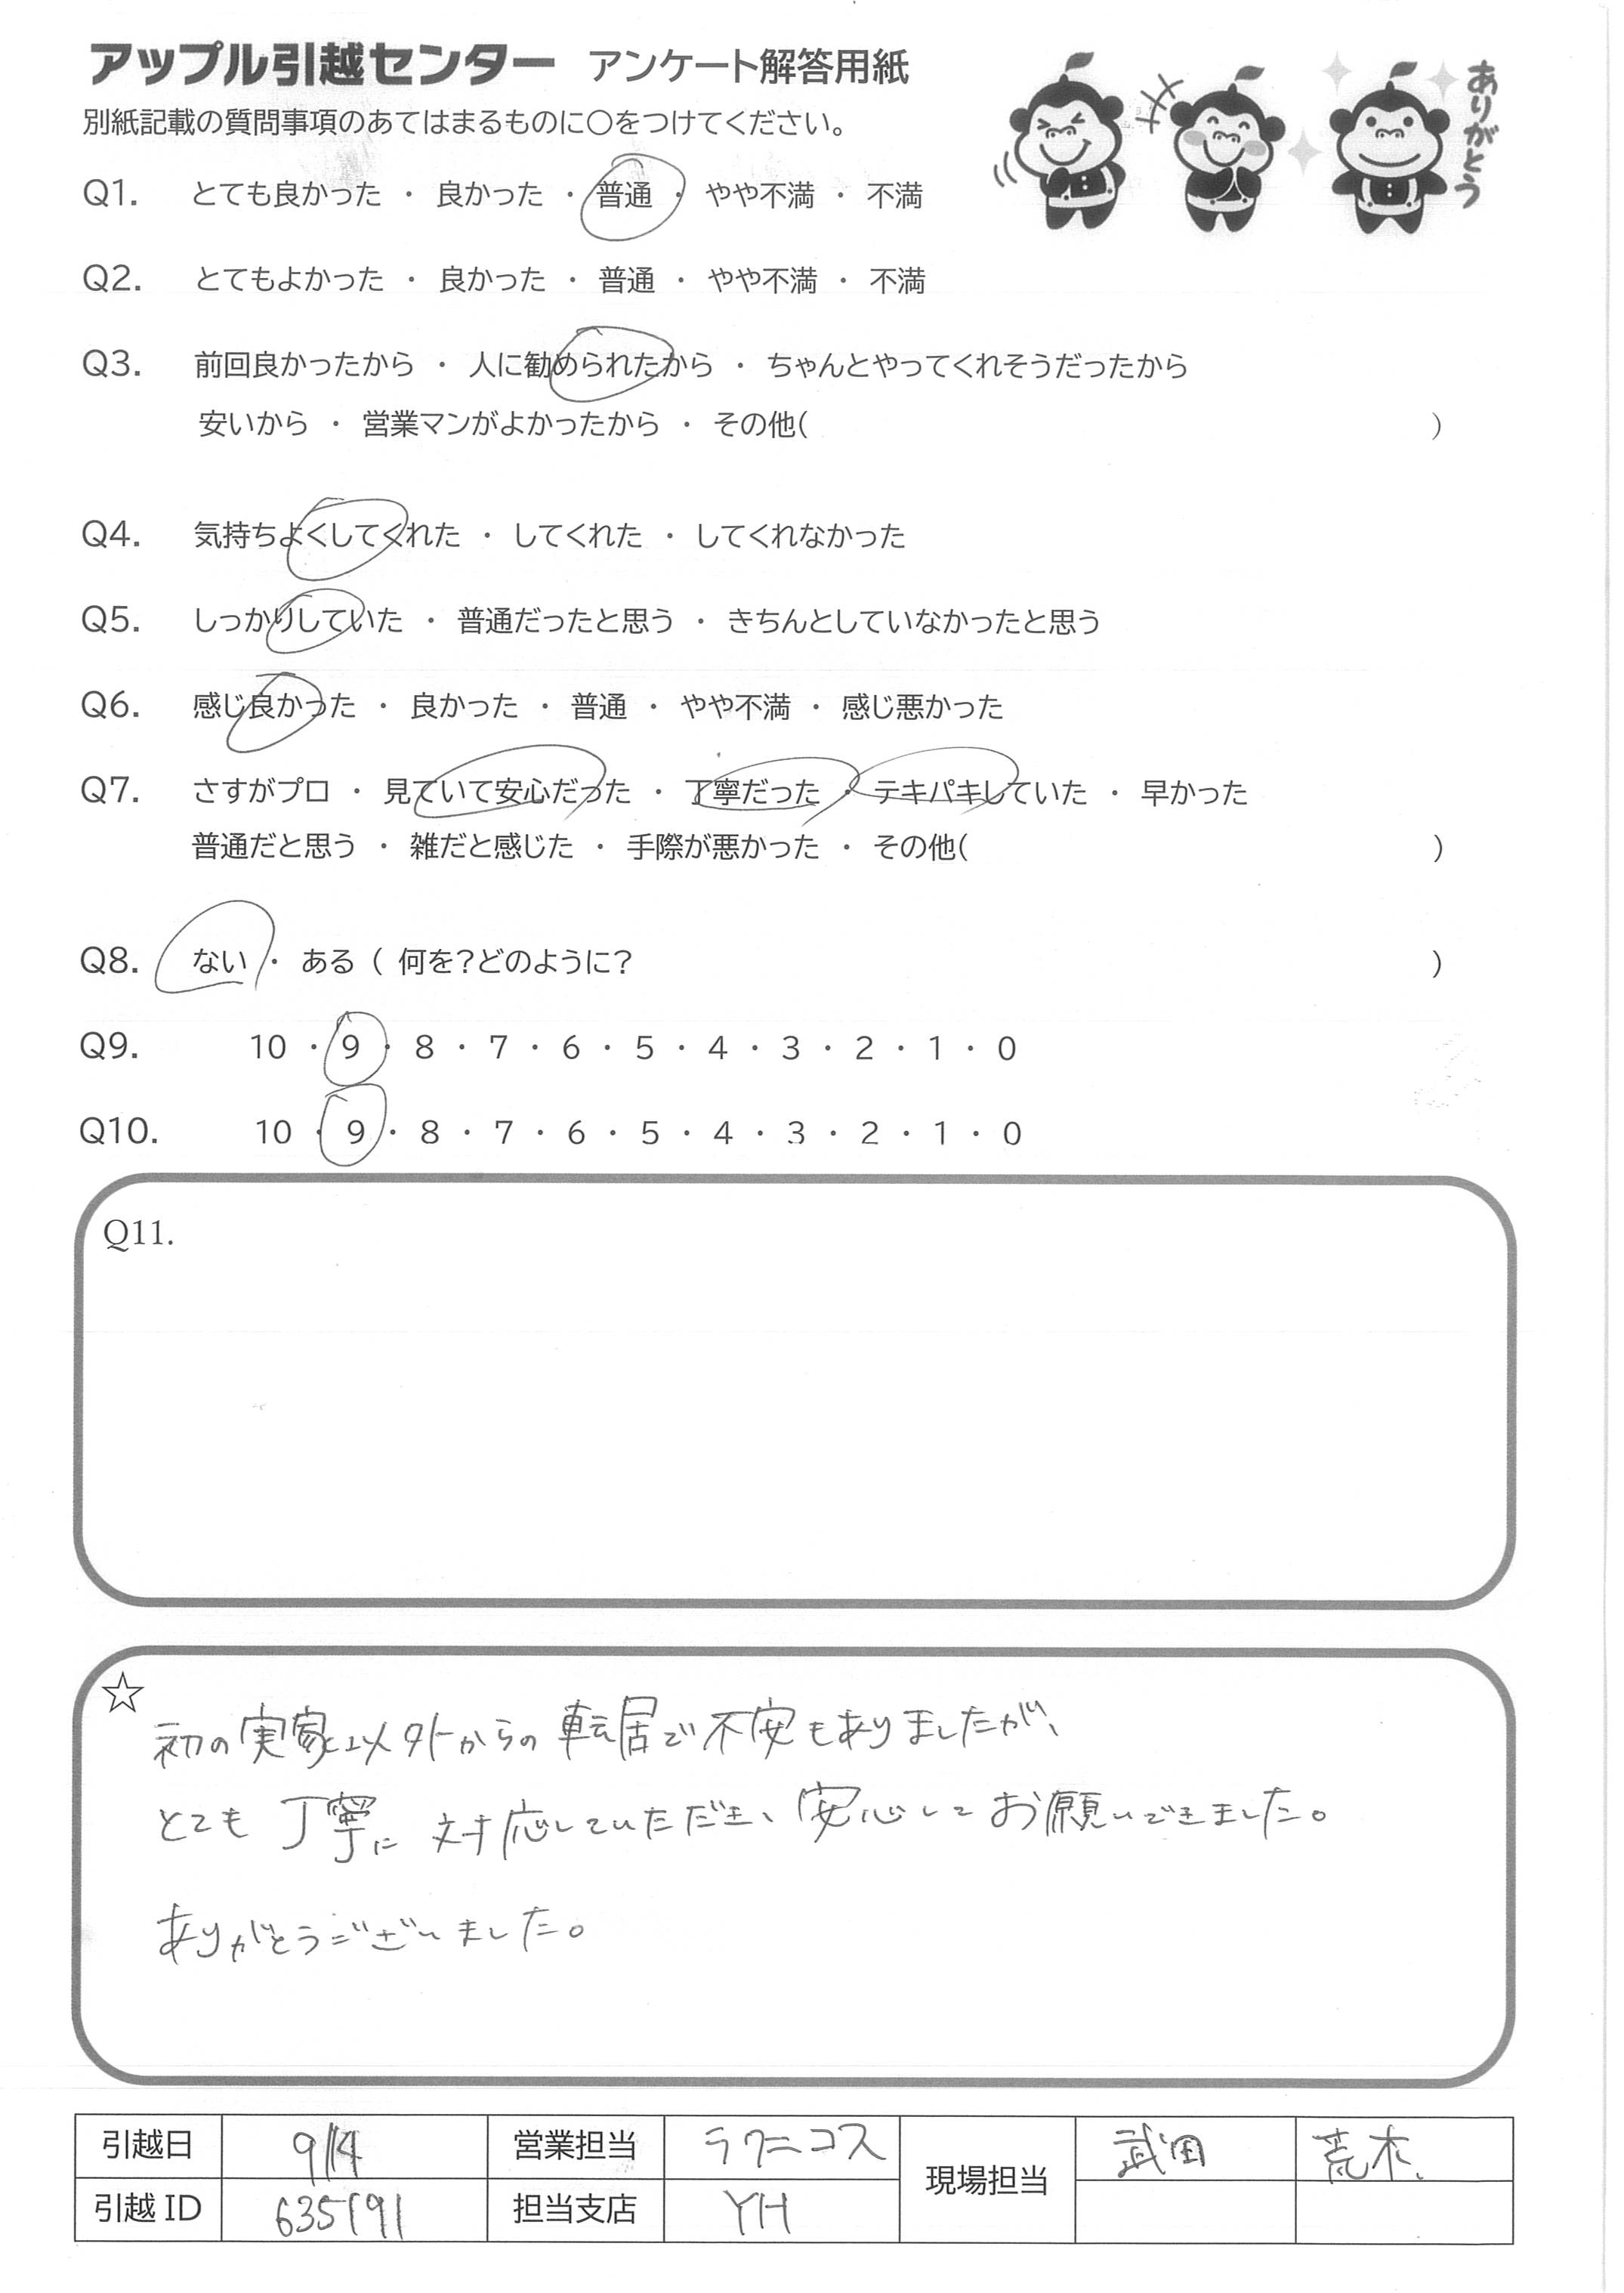 アップル引越センター アンケート解答用紙
ありがとう
別紙記載の質問事項のあてはまるものに〇をつけてください。
Q1. とても良かった ・ 良かった ・ 普通 ・ やや不満 ・ 不満
Q2. とてもよかった ・ 良かった ・ 普通 ・ やや不満 ・ 不満
Q3. 前回良かったから ・ 人に勧められたから ・ ちゃんとやってくれそうだったから
安いから ・ 営業マンがよかったから ・ その他( )
Q4. 気持ちよくしてくれた ・ してくれた ・ してくれなかった
Q5. しっかりしていた ・ 普通だったと思う ・ きちんとしていなかったと思う
Q6. 感じ良かった ・ 良かった ・ 普通 ・ やや不満 ・ 感じ悪かった
Q7. さすがプロ ・ 見ていて安心だった ・ 丁寧だった ・ テキパキしていた ・ 早かった
普通だと思う ・ 雑だと感じた ・ 手際が悪かった ・ その他( )
Q8. ない ・ ある ( 何を?どのように? )
Q9. 10 ・ 9 ・ 8 ・ 7 ・ 6 ・ 5 ・ 4 ・ 3 ・ 2 ・ 1 ・ 0
Q10. 10 ・ 9 ・ 8 ・ 7 ・ 6 ・ 5 ・ 4 ・ 3 ・ 2 ・ 1 ・ 0
Q11.
☆
初の実家以外からの転居で不安もありましたが、
とても丁寧に対応していただき、安心してお願いできました。
ありがとうございました。
引越日 営業担当 ラクニコス 現場担当 武田 荒木
引越ID 635191 担当支店 YH